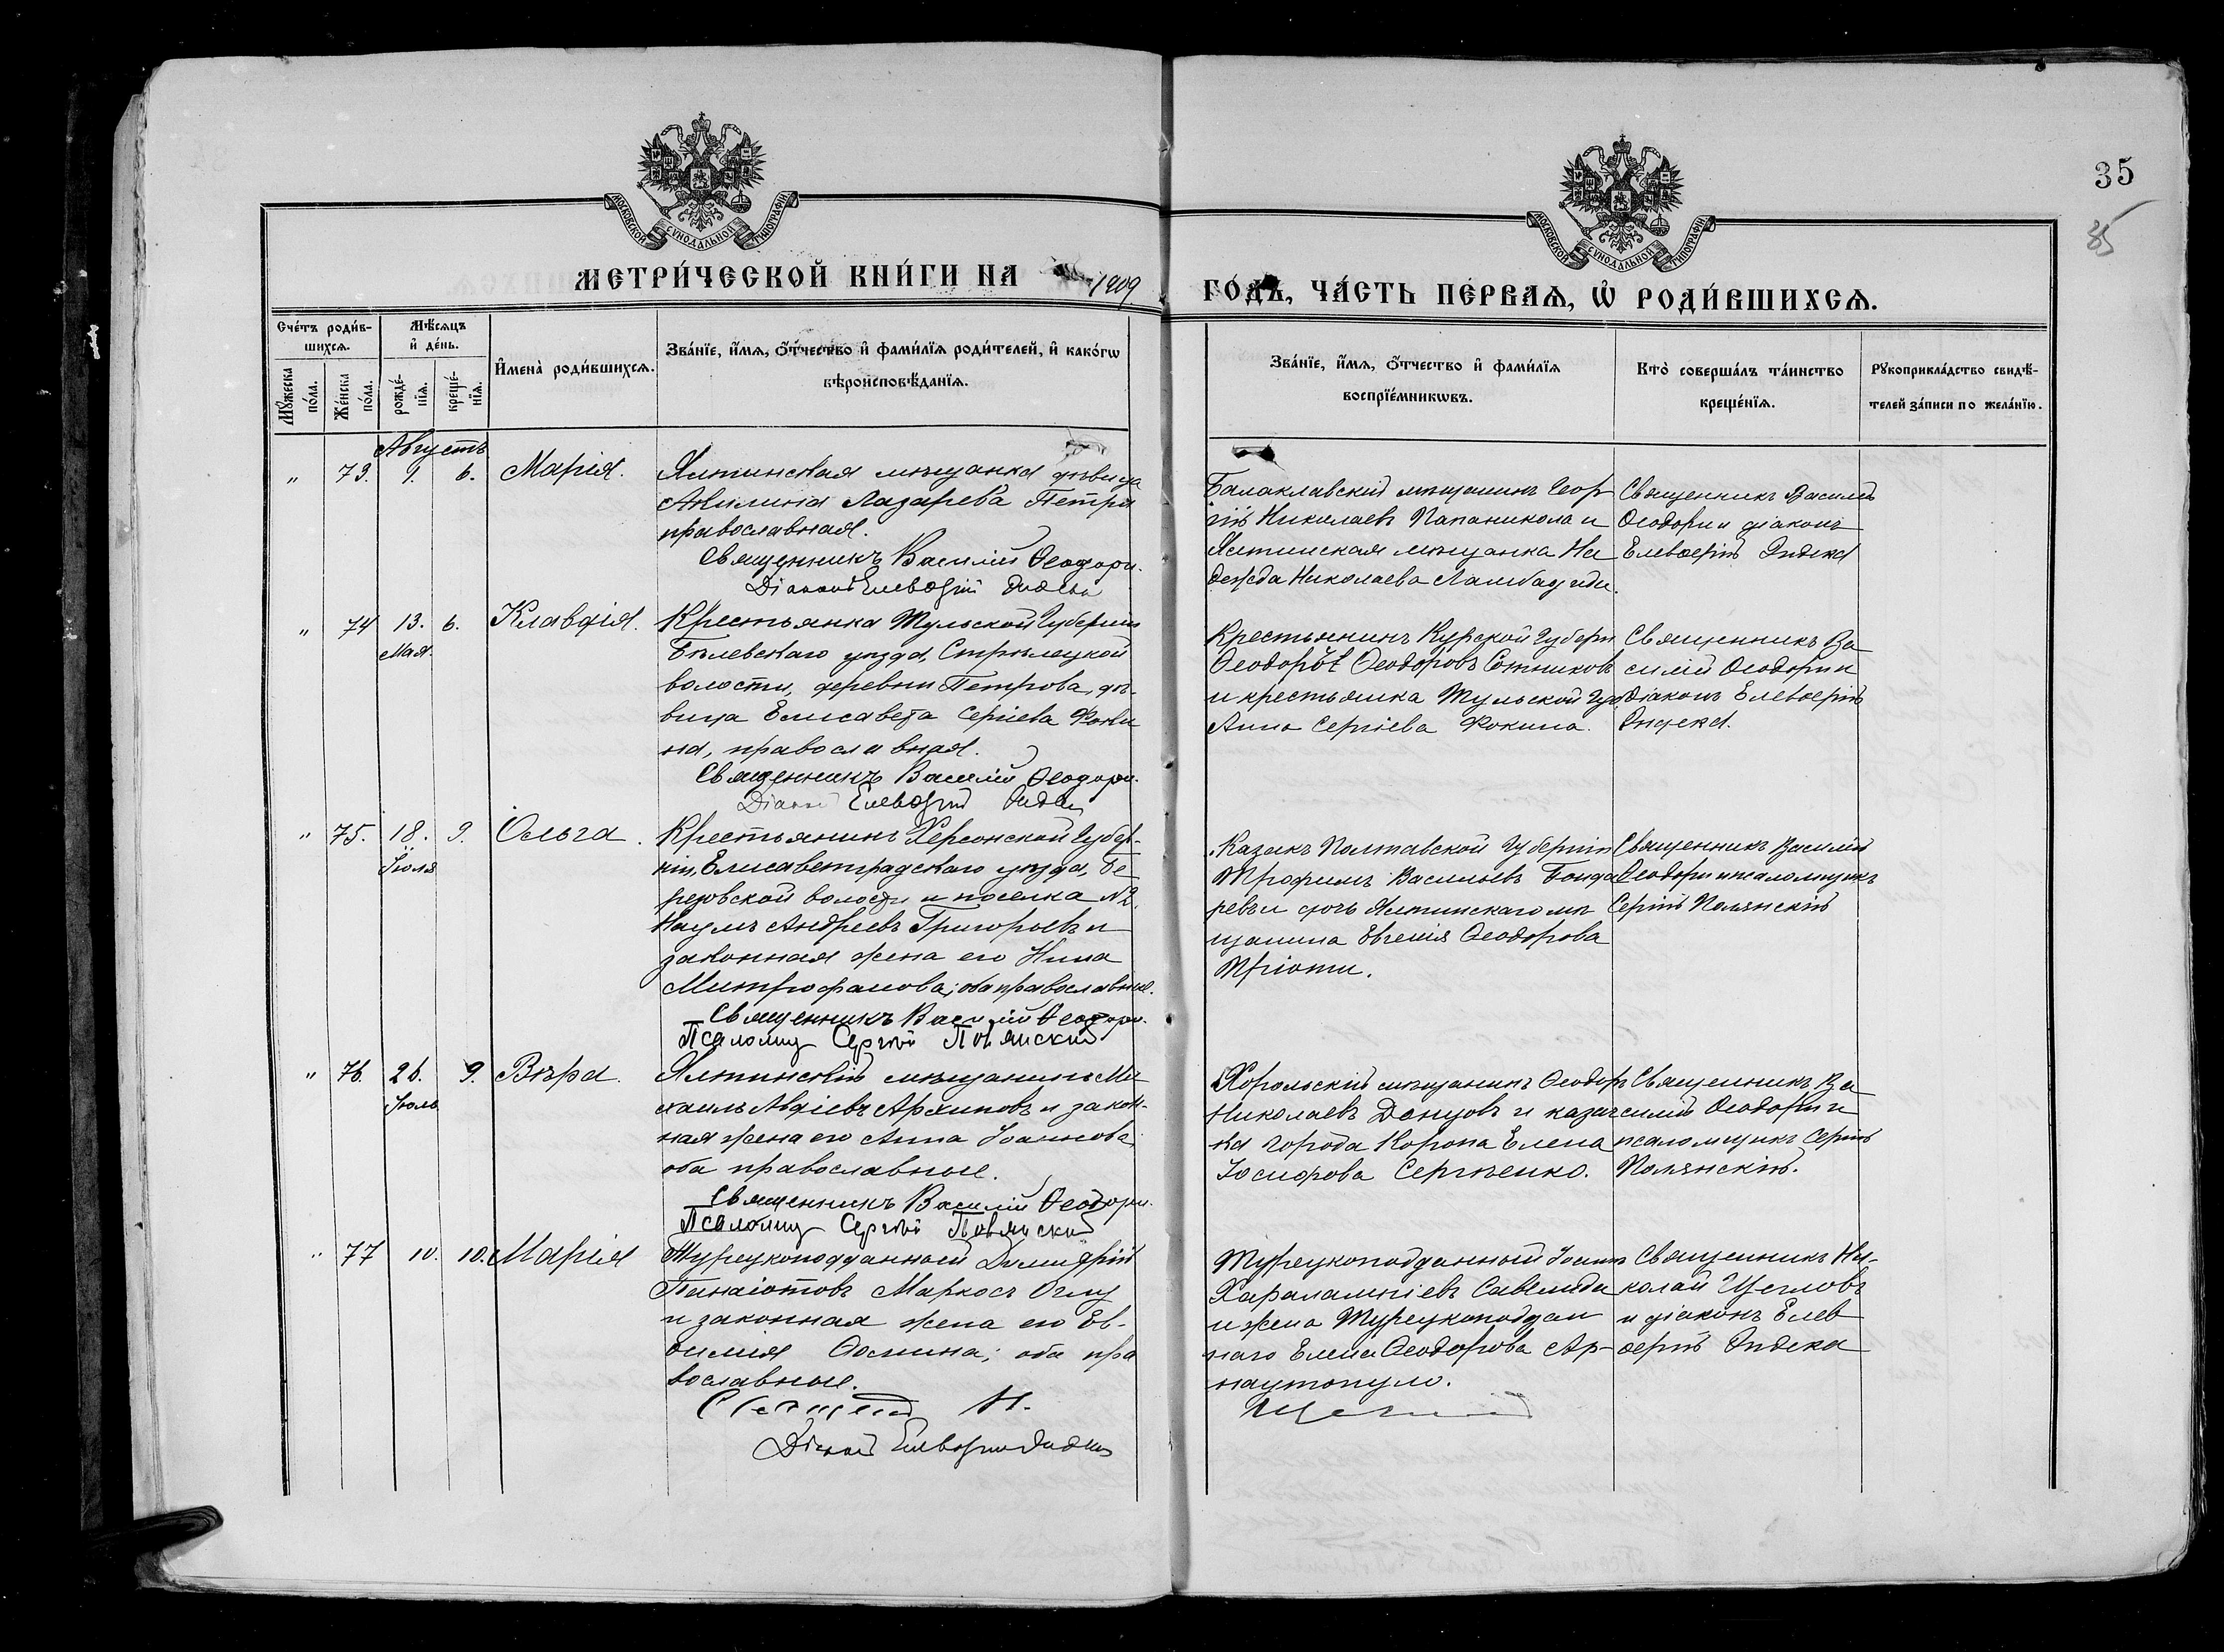 35
35
МОСКОВСКОЙ СѴНОДАЛЬНОЙ ТИПОГРАФІИ
МОСКОВСКОЙ СѴНОДАЛЬНОЙ ТИПОГРАФІИ
МЕТРИ́ЧЕСКОЙ КНИ́ГИ НА 1909
ГО́ДЪ, ЧА́СТЬ ПЕ́РВАѦ, Ѡ҆ РОДИ́ВШИХСѦ.
Сче́тъ роди́в-
шихсѧ.
Мѣ́сѧцъ
и҆ де́нь.
Мꙋ́жеска
по́ла.
Же́нска
по́ла.
рожде́-
нїѧ.
креще́-
нїѧ.
И҆мена̀ роди́вшихсѧ.
Зва́нїе, и҆́мѧ, ѻ҆́тчество и҆ фами́лїѧ роди́телей, и҆ како́гѡ
вѣроисповѣ́данїѧ.
Зва́нїе, и҆́мѧ, ѻ҆́тчество и҆ фами́лїѧ
воспрїе́мникѡвъ.
Кто̀ соверша́лъ та́инство
креще́нїѧ.
Рꙋкоприкла́дство свидѣ́-
телей за́писи по жела́нїю.
Августъ
" 73. 1. 6. Марія.
Ялтинская мѣщанка дѣвица
Акилина Лазарева Петри
православная.
Священникъ Василій Ѳеодори.
Діаконъ Елевѳерій Индека
Балаклавскій мѣщанинъ Геор-
гій Николаевъ Папаникола и
Ялтинская мѣщанка На
дежда Николаева Ламбадиди.
Священникъ Василій
Ѳеодори и діаконъ
Елевѳерій Индека
" 74 13. 6. Клавдія.
Мая.
Крестьянка Тульской Губерніи
Бѣлевскаго уѣзда, Стрѣлецкой
волости, деревни Петрова, дѣ-
вица Елисавета Сергіева Фоки
на, православная.
Священникъ Василій Ѳеодори.
Діаконъ Елевѳерій Индека
Крестьянинъ Курской Губерн.
Ѳеодоръ Ѳеодоровъ Сотниковъ
и крестьянка Тульской Губ.
Анна Сергіева Фокина.
Священникъ Ва
силій Ѳеодори и
діаконъ Елевѳерій
Индека.
" 75. 18. 9. Ольга.
Іюля
Крестьянинъ Херсонской Губер-
ніи, Елисаветградскаго уѣзда,
волости и поселка №2.
Наумъ Андреевъ Григорьевъ и
законная жена его Нина
Митрофанова; оба православные.
Священникъ Василій Ѳеодори.
Псаломщ Сергій Полянскій
Казакъ Полтавской Губерніи
Трофимъ Васильевъ Бонда
ревъ и дочь Ялтинскаго мѣ
щанина Евгенія Ѳеодорова
Тріоти.
Священникъ Василій
Ѳеодори и псаломщикъ
Сергій Полянскій
" 76. 26. 9. Вѣра.
Іюль
Ялтинскій мѣщанинъ Ми
хаилъ Авдіевъ Архиповъ и закон-
ная жена его Анна Іоаннова
оба православные.
Священникъ Василій Ѳеодори.
Псаломщ Сергій Полянскій
Хорольскій мѣщанинъ Ѳеодоръ
Николаевъ Донцовъ и казач
ка города Коропа Елена
Іосифова Сергѣенко.
Священникъ Ва
силій Ѳеодори и
псаломщикъ Сергій
Полянскій.
" 77 10. 10. Марія
Турецкоподданный Димитрій
Панаіотовъ Маркосъ Оглу
и законная жена его Ев-
ѳимія Ѳомина; оба пра
вославные.
Н.
Діаконъ Елевѳерій Индека
Турецкоподданный Іоаннъ
Харалампіевъ Савелиди
и жена Турецкоподдан
наго Елена Ѳеодорова Ар-
наутопуло.
Священникъ Ни-
колай Щегловъ
и діаконъ Елев
ѳерій Индека